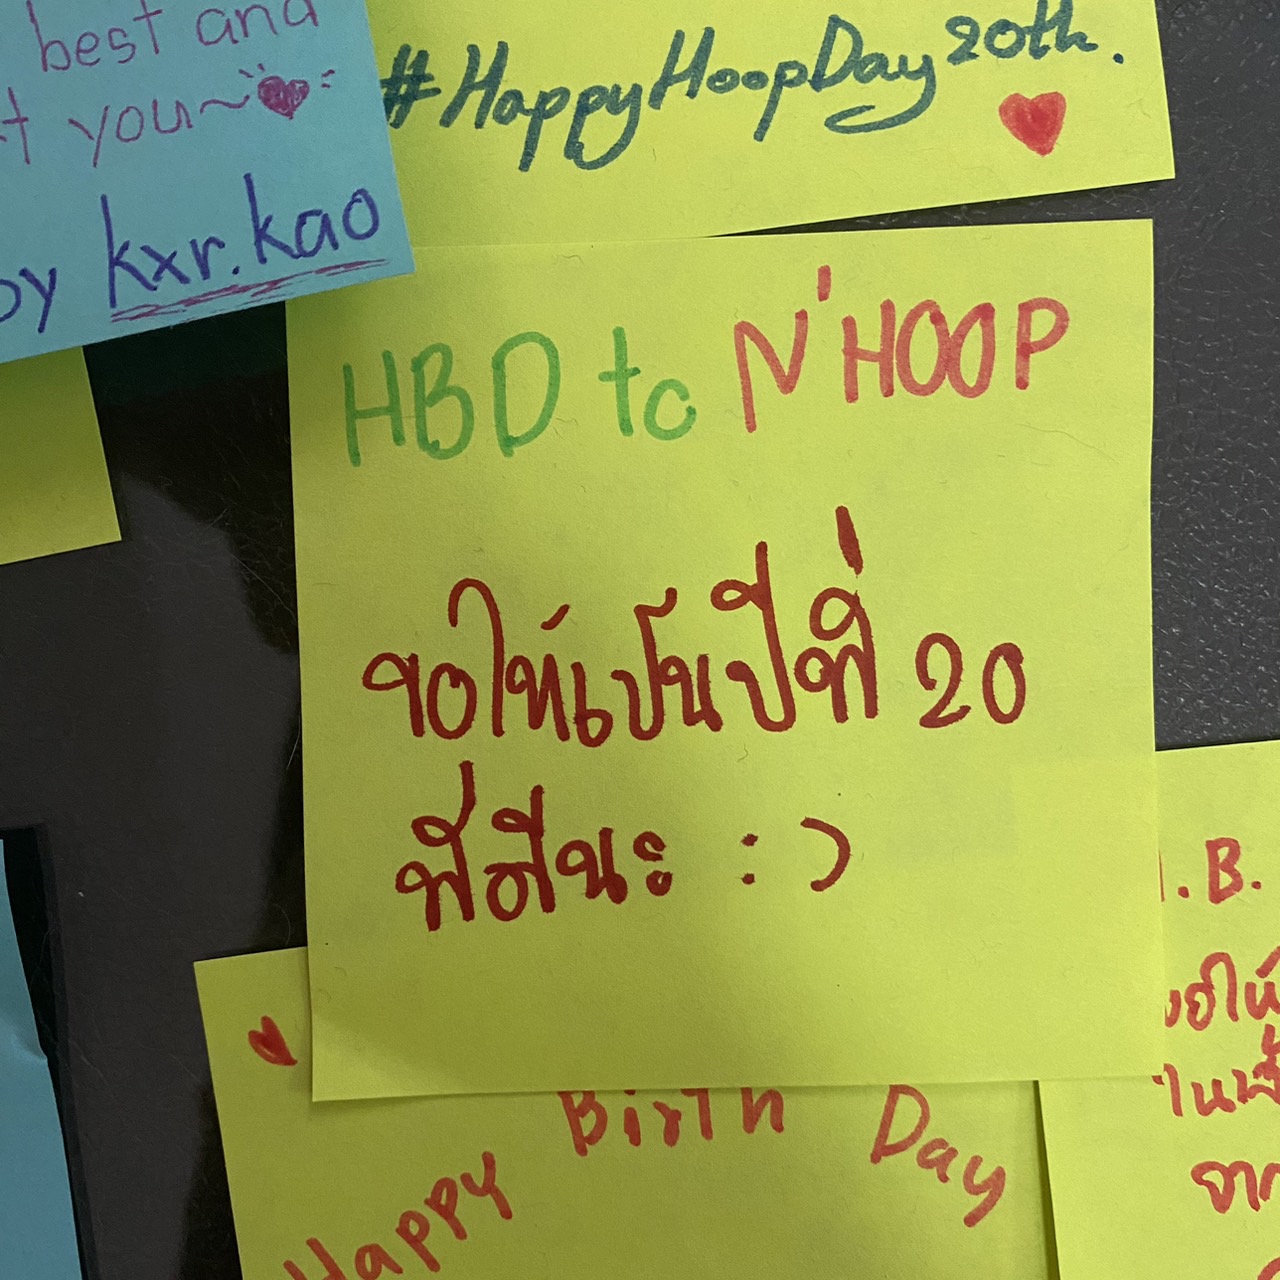 best and
you~
by kxr.kao
#HappyHoopDay20th.
HBD to N'HOOP
ขอให้เป็นปีที่ 20
ที่ดีนะ :)
Happy Birth Day
.B.
ขอให้
จาก